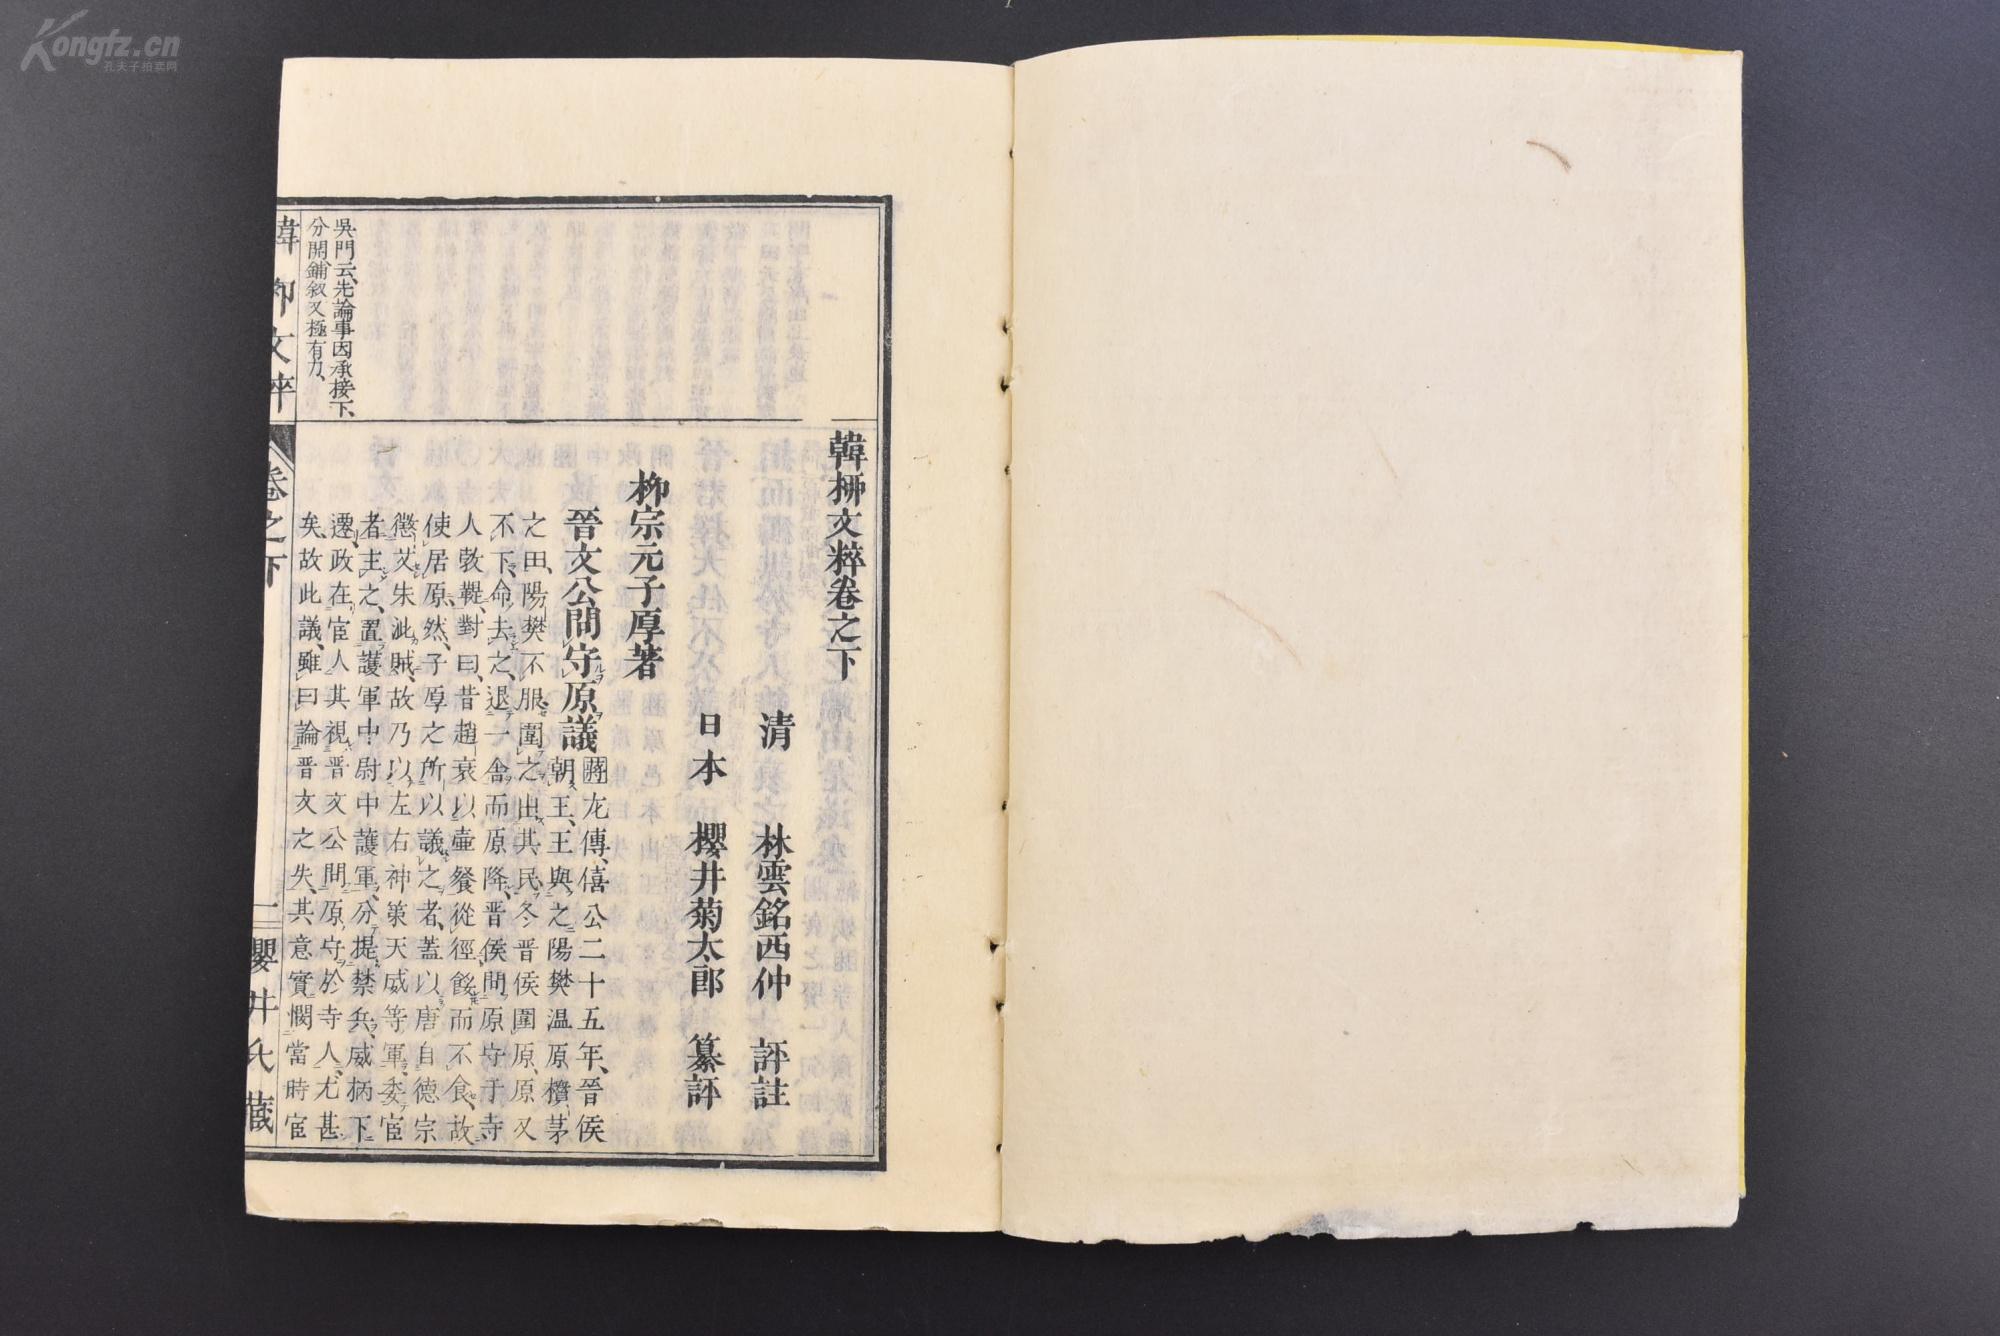 韓柳文粹卷之下
清 林雲銘西仲 評註
日本 櫻井菊太郎 纂評
柳宗元子厚著
晉文公問守原議
蔣左傳、僖公二十五年、晉侯
朝王、王與之陽樊溫原欑茅
之田、陽樊不服圍之出其民、冬晉侯圍原、原又
不下、命去之、退一舍而原降、晉侯問原守于寺
人敦鞮、對曰、昔趙衰以壷餐從徑餒而不食、故
使居原、然子厚之所以議之者、蓋以唐自德宗
懲艾朱泚賊、故乃以左右神策天威等軍、委宦
者主之、置護軍中尉中護軍、分提禁兵、威柄下
遷、政在宦人其視晉文公問原守於寺人、尤甚
矣、故此議、雖曰論晉文之失、其意實憫當時宦
吳門云、先論事因承接下、
分開鋪敘又極有力、
韓柳文粹
卷之下
一
櫻井氏藏
Kongfz.cn
孔夫子拍卖网